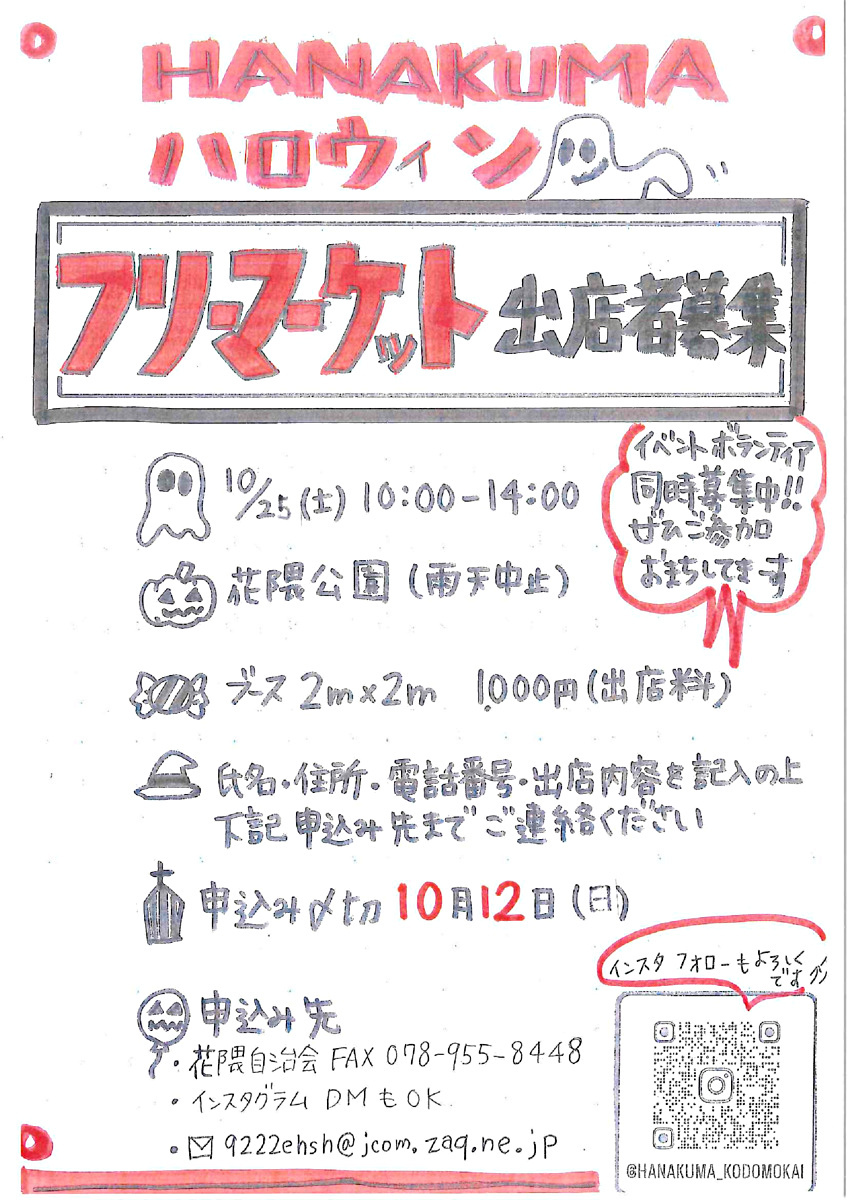 HANAKUMA
ハロウィン
フリーマーケット 出店者募集
イベントボランティア
同時募集中!!
ぜひご参加
おまちしてまーす
10/25(土) 10:00-14:00
花隈公園(雨天中止)
ブース2m×2m 1,000円(出店料)
氏名・住所・電話番号・出店内容を記入の上
下記申込み先までご連絡ください
申込み〆切 10月12日(日)
インスタ フォローもよろしく
です
申込み先
・花隈自治会 FAX 078-955-8448
・インスタグラム DMもOK
・✉ 9222ehsh@jcom.zaq.ne.jp
@HANAKUMA_KODOMOKAI